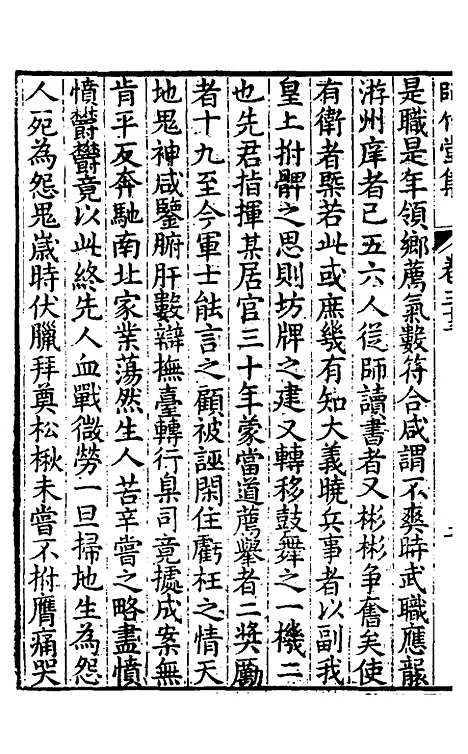 師竹堂集 卷三十三
是職是年領鄉薦氣數符合咸謂不爽時武職應襲
游州庠者已五六人從師讀書者又彬彬爭奮矣使
有衛者槩若此或庶幾有知大義曉兵事者以副我
皇上拊髀之思則坊牌之建又轉移鼓舞之一機二
也先君指揮某居官三十年蒙當道薦舉者二奬勵
者十九至今軍士能言之顧被誣閑住虧枉之情天
地鬼神咸鑒腑肝數辯撫臺轉行臬司竟據成案無
肯平反奔馳南北家業蕩然生人苦辛嘗之略盡憤
憤鬱鬱竟以此終先人血戰微勞一旦掃地生為怨
人死為怨鬼歲時伏臘拜奠松楸未嘗不拊膺痛哭